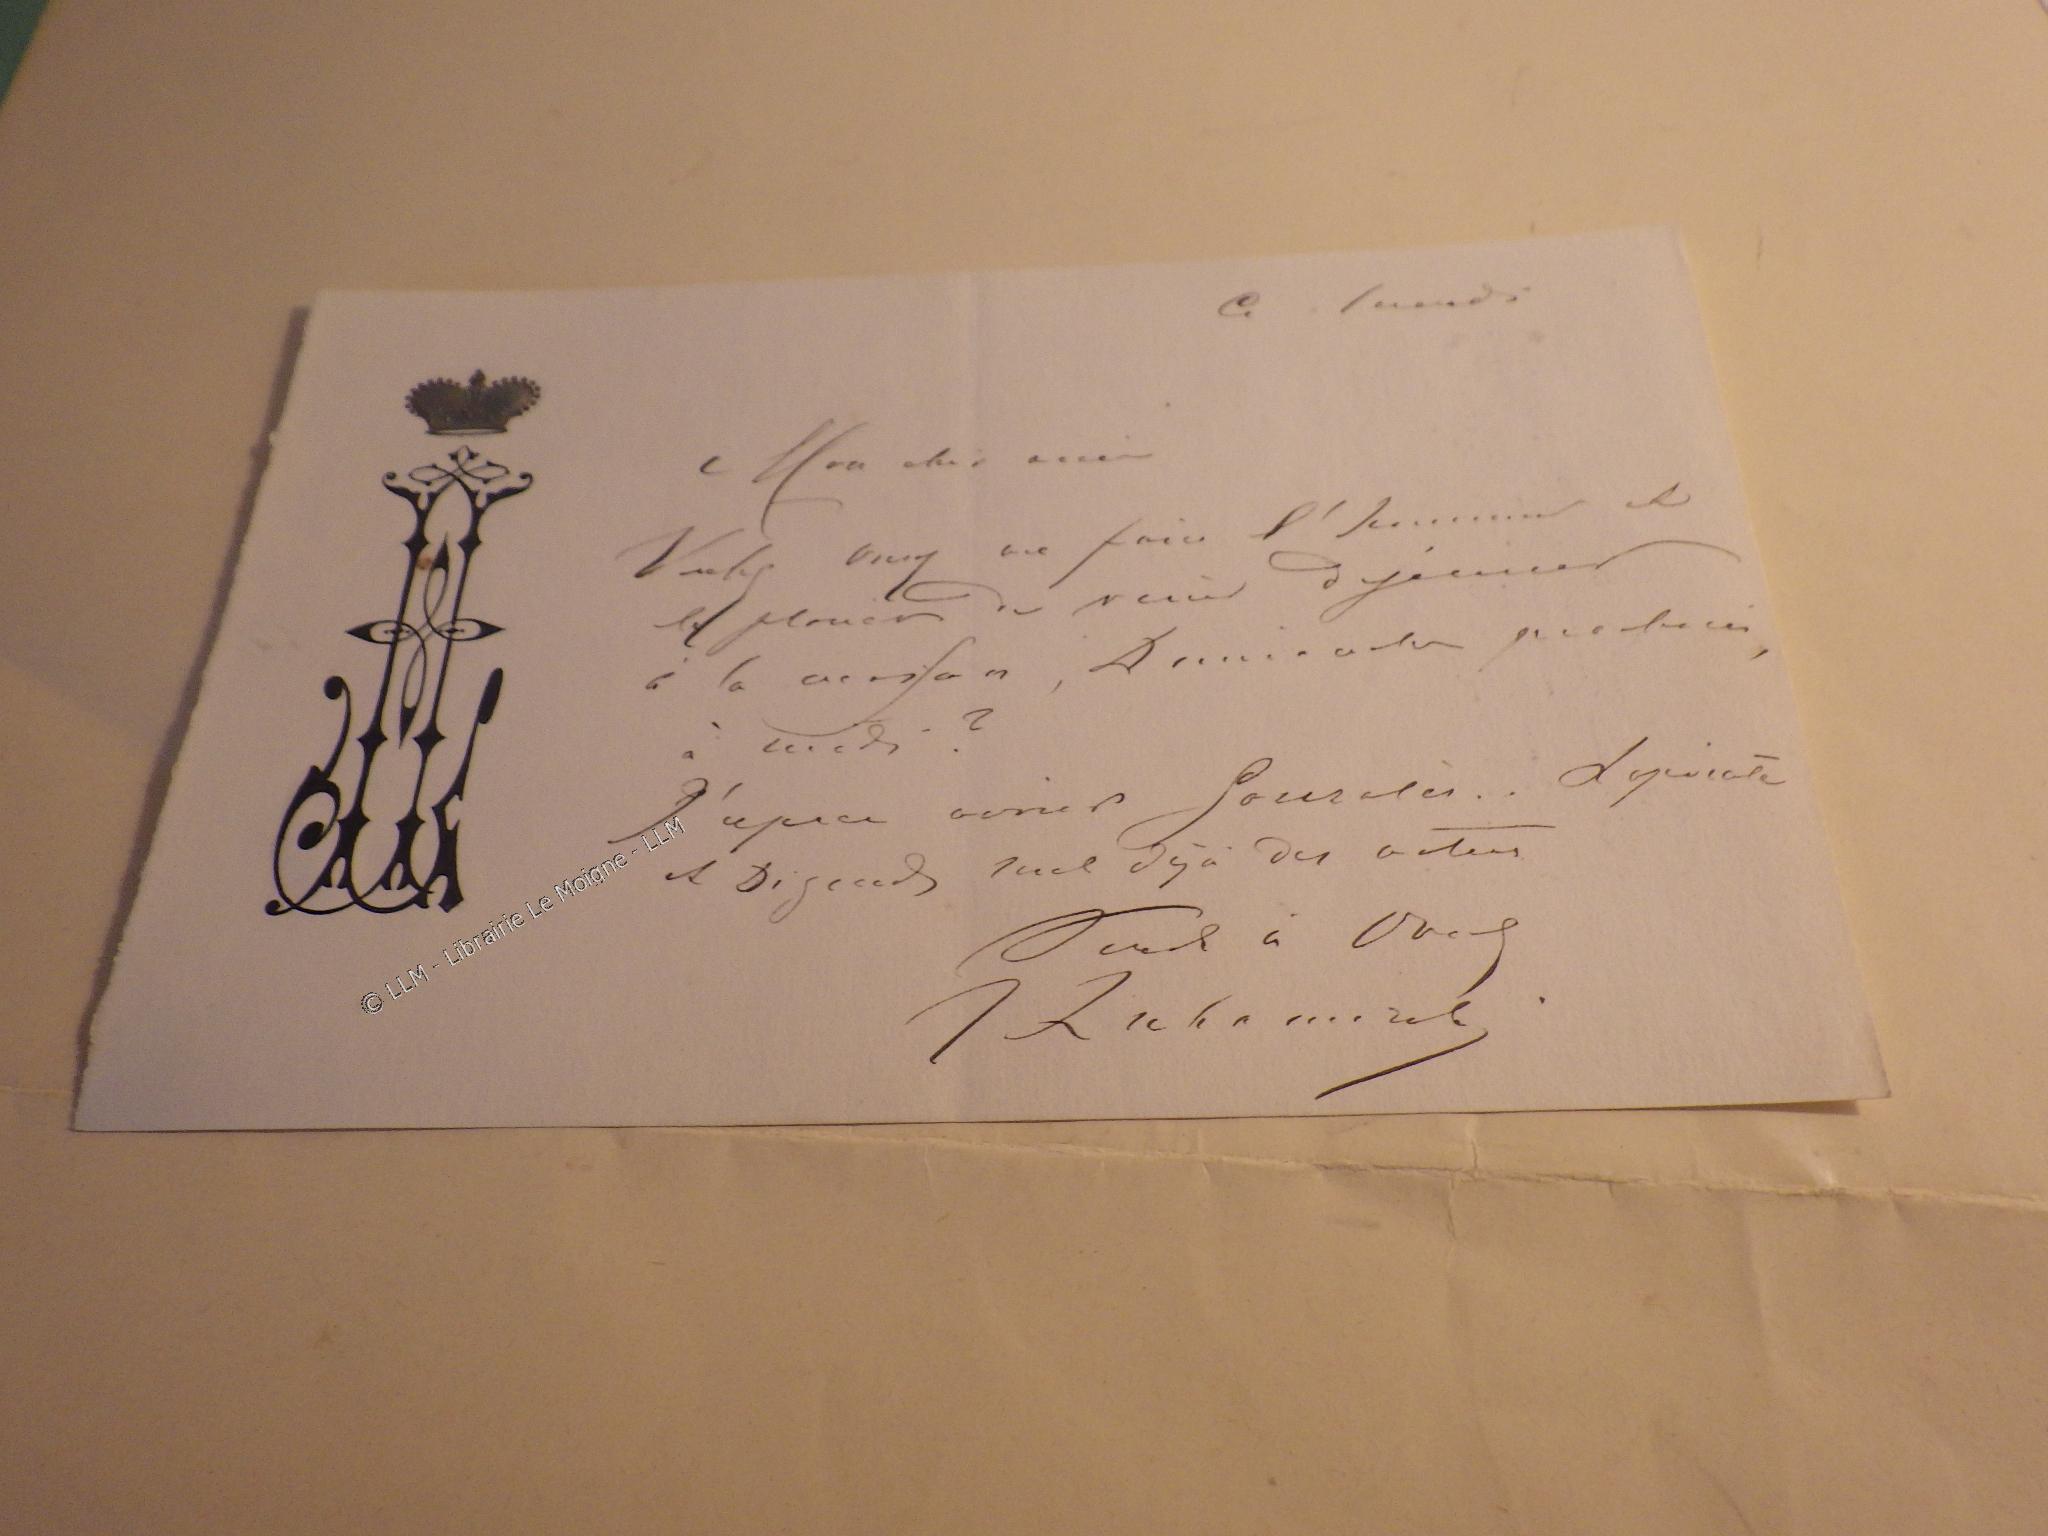 Ce lundi
Mon cher ami
Voulez vous me faire l'honneur et
le plaisir de venir déjeuner
à la maison, Dimanche prochain,
à midi ?
J'espère avoir Gonzalès.. Lapierre
et sont déjà des
Tout à Vous
© LLM - Librairie Le Moigne - LLM